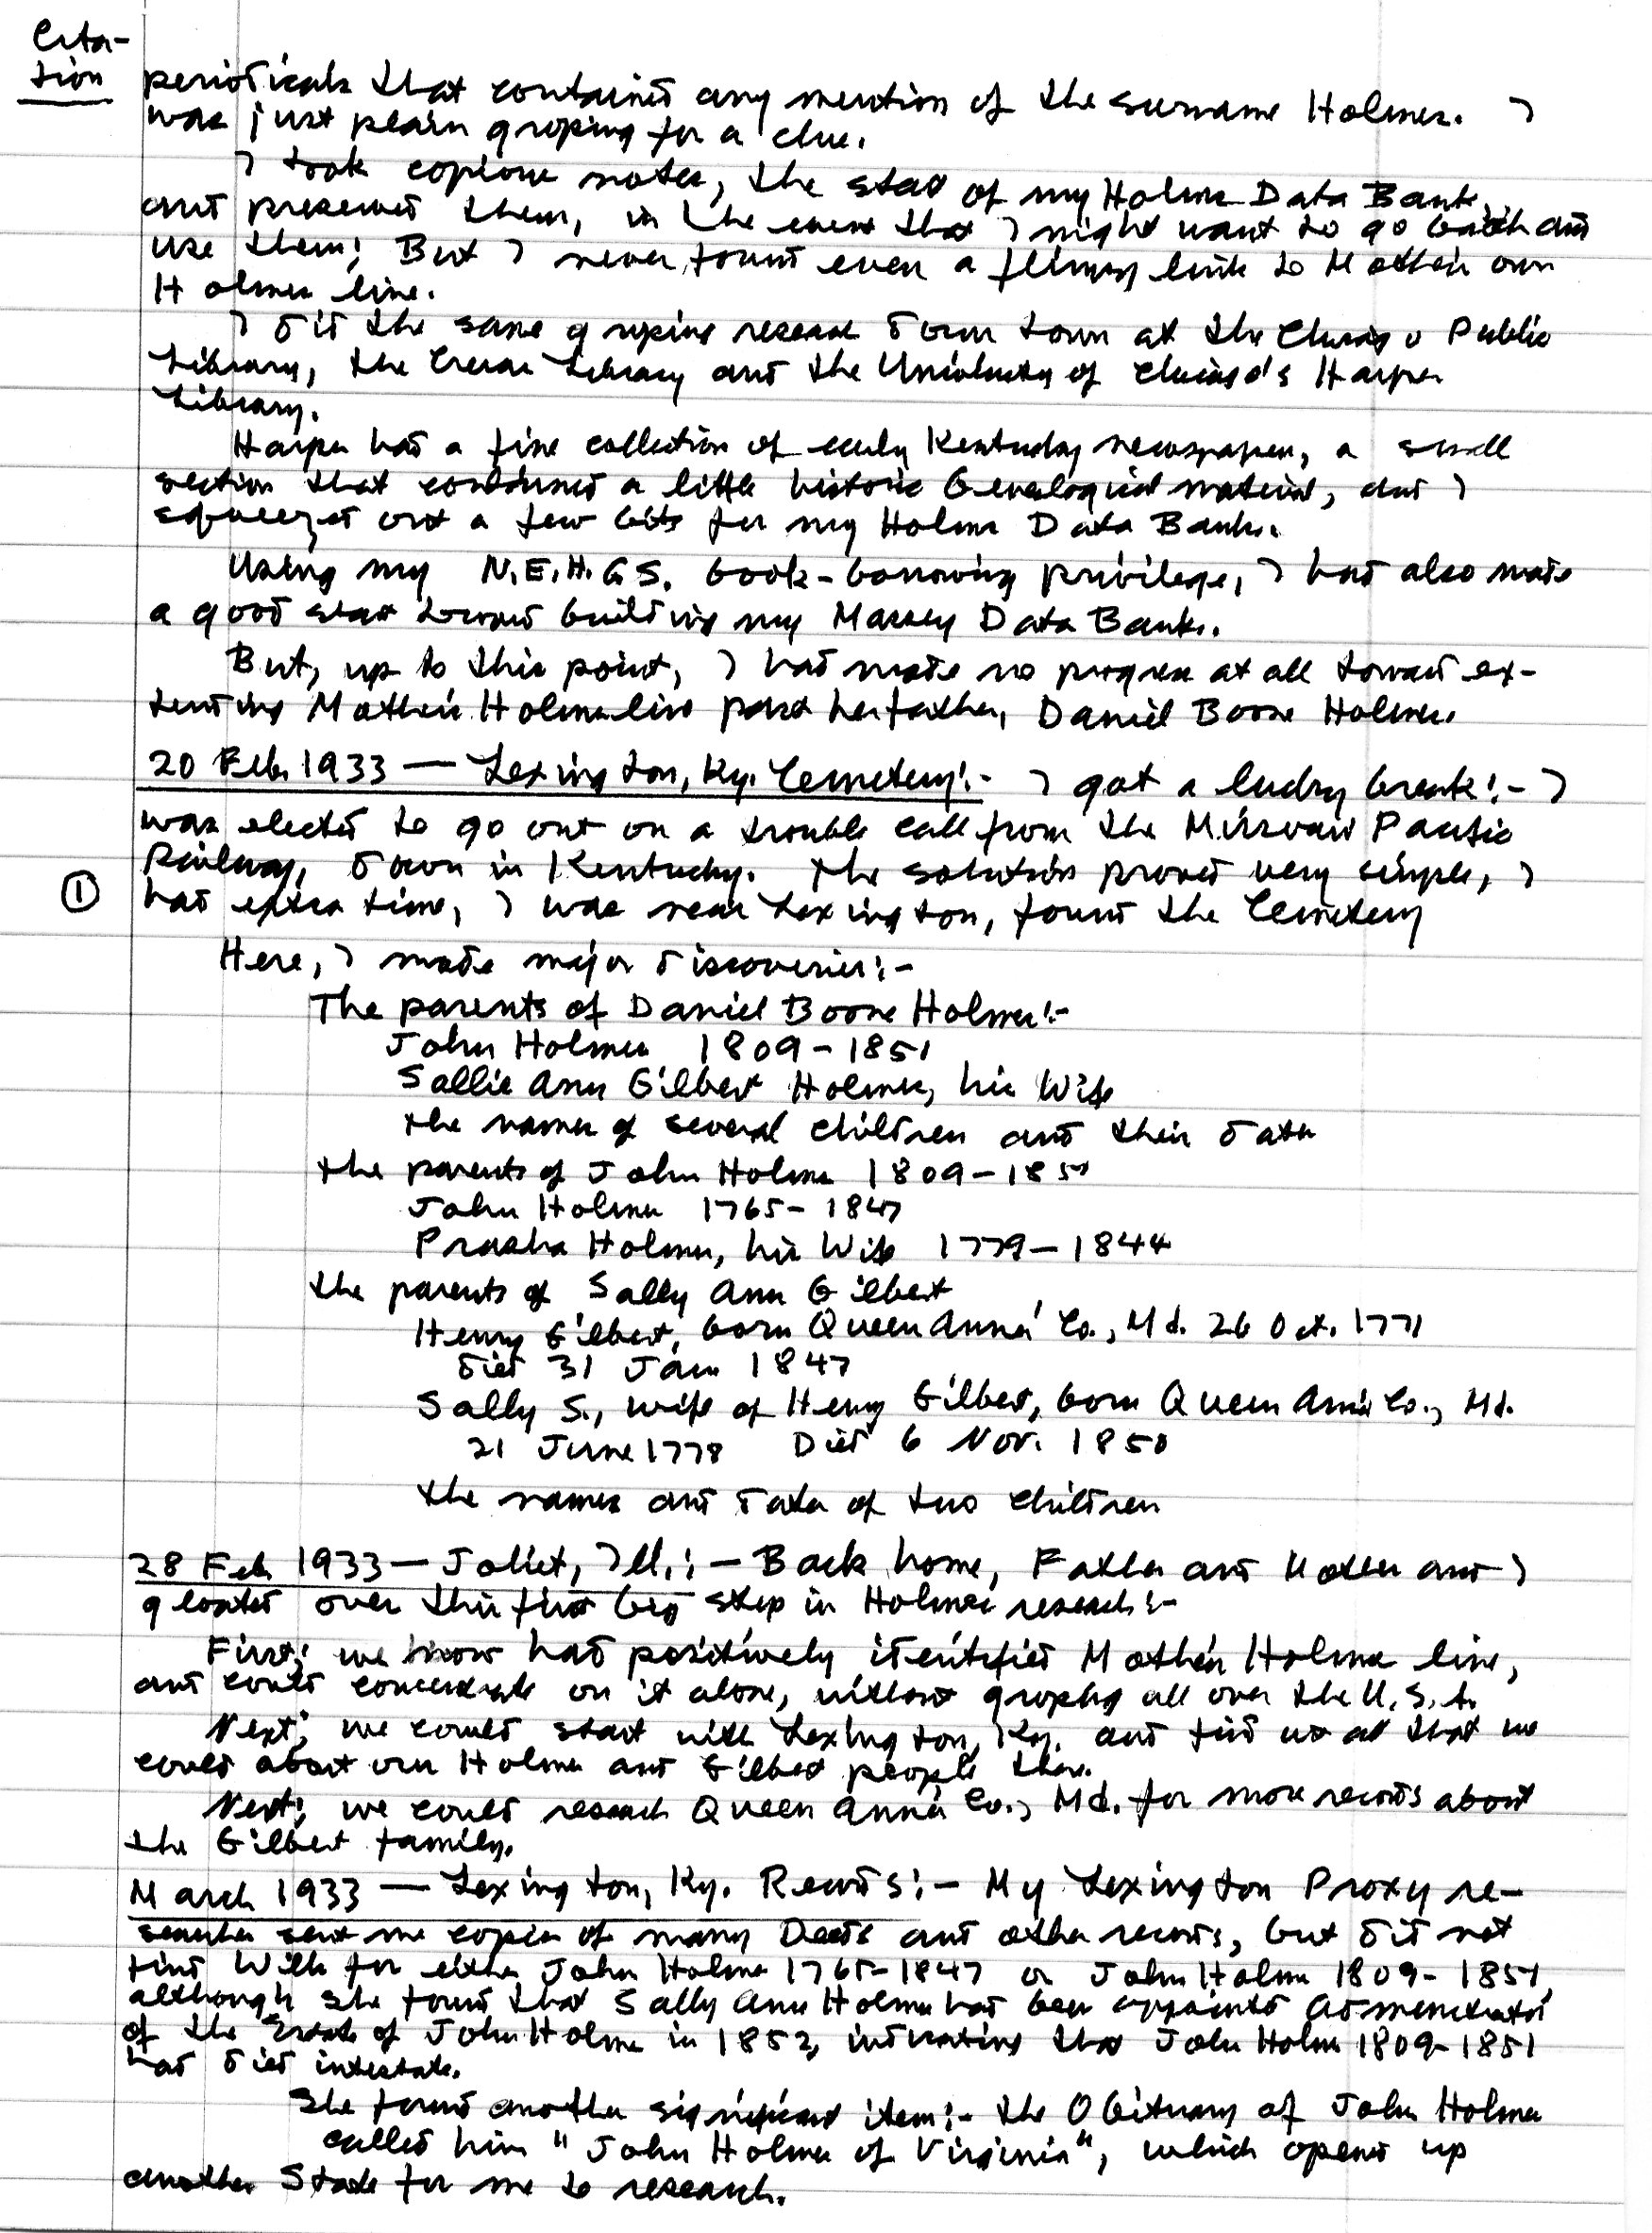 Cita-
tion
periodicals that contained any mention of the surname Holmes. I
was just plain groping for a clue.
I took copious notes, the start of my Holmes Data Bank,
and preserved them, in the event that I might want to go back and
use them; But I never found even a flimsy link to Mother's own
Holmes line.
I did the same groping research down town at the Chicago Public
Library, the Crerar Library and the University of Chicago's Harper
Library.
Harper had a fine collection of early Kentucky newspapers, a small
section that contained a little historic Genealogical material, and I
squeezed out a few bits for my Holmes Data Bank.
Using my N.E.H.G.S. book-borrowing privilege, I had also made
a good start toward building my Massey Data Bank.
But, up to this point, I had made no progress at all toward ex-
tending Mother's Holmes line past her father, Daniel Boone Holmes.
20 Feb. 1933 — Lexington, Ky. Cemetery:- I got a lucky break:- I
was elected to go out on a trouble call from the Missouri Pacific
Railway, down in Kentucky. The solution proved very simple, I
① had extra time, I was near Lexington, found the Cemetery
Here, I made major discoveries:-
The parents of Daniel Boone Holmes:-
John Holmes 1809-1851
Sallie Ann Gilbert Holmes, his Wife
the names of several children and their dates
the parents of John Holmes 1809-1851
John Holmes 1765-1847
Holmes, his Wife 1779-1844
the parents of Sally Ann Gilbert
Henry Gilbert, born Queen Anne's Co., Md. 26 Oct. 1771
died 31 Jan 1847
Sally S., wife of Henry Gilbert, born Queen Anne's Co., Md.
21 June 1778 Died 6 Nov. 1850
the names and dates of two children
28 Feb 1933 — Joliet, Ill.:- Back home, Father and Mother and I
gloated over this first big step in Holmes research:-
First; we know had positively identified Mother's Holmes line,
and could concentrate on it alone, without groping all over the U.S.A.
Next; we could start with Lexington, Ky. and find out all that we
could about our Holmes and Gilbert people there.
Next; we could research Queen Anne's Co., Md. for more records about
the Gilbert family.
March 1933 — Lexington, Ky. Records:- My Lexington Proxy re-
searcher sent me copies of many Deeds and other records, but did not
find Wills for either John Holmes 1765-1847 or John Holmes 1809-1851,
although she found that Sally Ann Holmes had been appointed
of the Estate of John Holmes in 1852, indicating that John Holmes 1809-1851
had died intestate.
She found another significant item:- the Obituary of John Holmes
called him "John Holmes of Virginia", which opened up
another State for me to research.